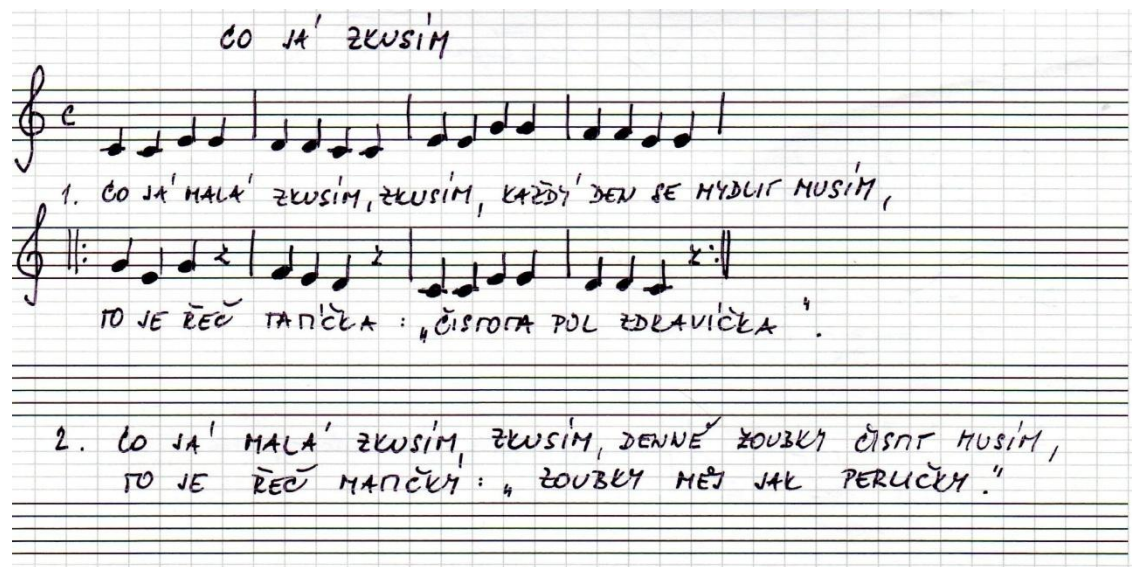 CO JÁ ZKUSÍM
1. CO JÁ MALÁ ZKUSÍM, ZKUSÍM, KAŽDÝ DEN SE MÝDLIT MUSÍM,
TO JE ŘEČ TATÍČKA: „ČISTOTA PŮL ZDRAVÍČKA".
2. CO JÁ MALÁ ZKUSÍM, ZKUSÍM, DENNĚ ZOUBKY ČISTIT MUSÍM,
TO JE ŘEČ MATIČKY: „ZOUBKY MĚJ JAK PERLIČKY."